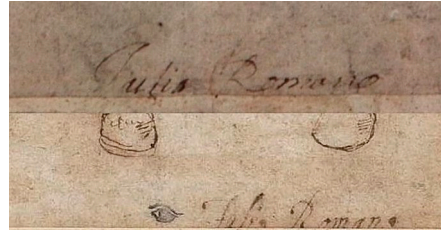 Julio Romano
Julio Romano